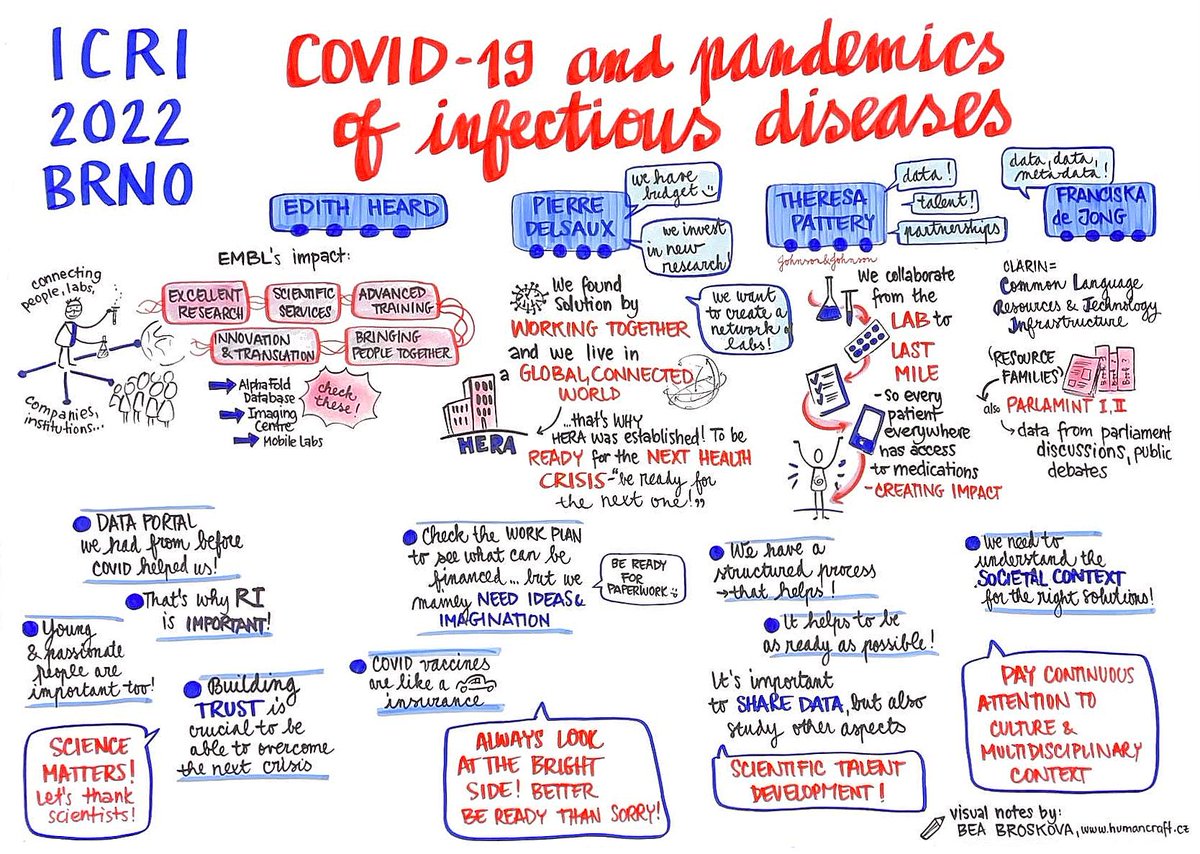 ICRI
2022
BRNO
COVID-19 and pandemics
of infectious diseases
EDITH HEARD
EMBL's impact:
connecting
people, labs,
companies,
institutions...
EXCELLENT
RESEARCH
SCIENTIFIC
SERVICES
ADVANCED
TRAINING
INNOVATION
& TRANSLATION
BRINGING
PEOPLE TOGETHER
AlphaFold
Database
Imaging
Centre
Mobile Labs
check
these!
DATA PORTAL
we had from before
COVID helped us!
That's why RI
is IMPORTANT!
Young
& passionate
people are
important too!
Building
TRUST is
crucial to be
able to overcome
the next crisis
SCIENCE
MATTERS!
Let's thank
scientists!
PIERRE
DELSAUX
we have
budget
we invest
in new
research!
We found
solution by
WORKING TOGETHER
and we live in
a GLOBAL, CONNECTED
WORLD
we want
to create a
network of
labs!
HERA
...that's WHY
HERA was established! To be
READY for the NEXT HEALTH
CRISIS-"be ready for
the next one!"
Check the WORK PLAN
to see what can be
financed... but we
mamey NEED IDEAS &
IMAGINATION
BE READY
FOR
PAPERWORK
COVID vaccines
are like a
insurance
ALWAYS LOOK
AT THE BRIGHT
SIDE! BETTER
BE READY THAN SORRY!
THERESA
PATTERY
Johnson&Johnson
data!
talent!
partnerships
We collaborate
from the
LAB to
LAST
MILE
-so every
patient
everywhere
has access
to medications
-CREATING IMPACT
We have a
structured process
→that helps!
It helps to be
as ready as possible!
It's important
to SHARE DATA, but also
study other aspects
SCIENTIFIC TALENT
DEVELOPMENT!
data, data,
metadata!
FRANCISKA
de JONG
CLARIN=
Common Language
Resources & Technology
Infrastructure
'RESOURCE
FAMILIES'
also PARLAMINT I, II
data from parliament
discussions, public
debates
We need to
understand the
SOCIETAL CONTEXT
for the right solutions!
PAY CONTINUOUS
ATTENTION TO
CULTURE &
MULTIDISCIPLINARY
CONTEXT
visual notes by:
BEA BROSKOVA, www.humancraft.cz